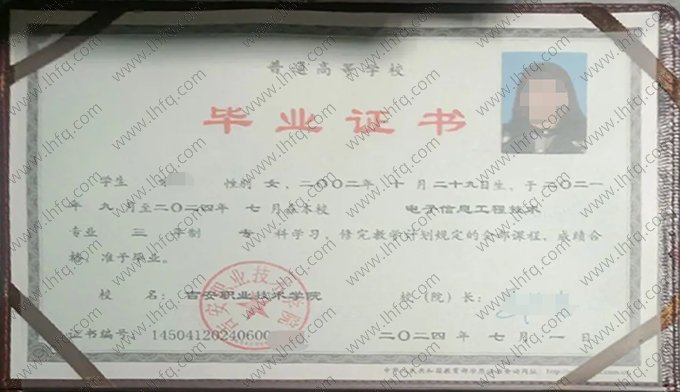 普通高等学校
毕业证书
学生 性别 女，二〇〇二年 十 月 二十九日生，于二〇二一
年 九 月至二〇二四年 七 月在本校 电子信息工程技术
专业 三 年制 专 科学习，修完教学计划规定的全部课程，成绩合
格，准予毕业。
校 名：吉安职业技术学院 校（院）长：
吉安职业技术学院
证书编号：14504120240600 二〇二四年 七 月 一 日
www.lhfq.com